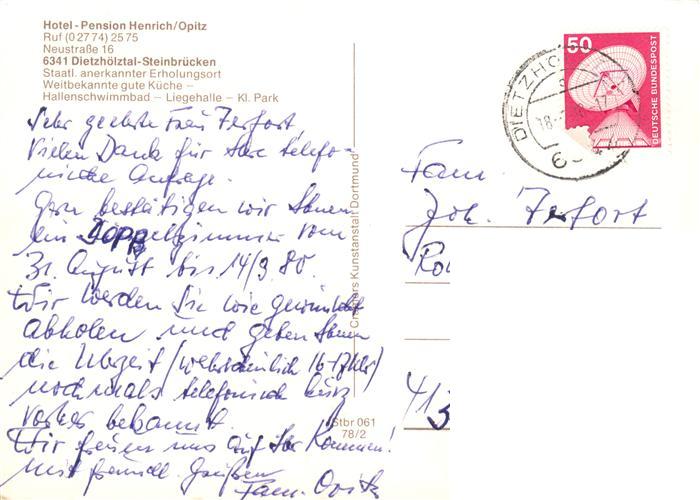 Hotel - Pension Henrich/Opitz
Ruf (0 27 74) 25 75
Neustraße 16
6341 Dietzhölztal-Steinbrücken
Staatl. anerkannter Erholungsort
Weitbekannte gute Küche –
Hallenschwimmbad – Liegehalle – Kl. Park
Sehr geehrte Frau Ferfort
Vielen Dank für Ihre telefo-
nische Anfrage.
Gern bestätigen wir Ihnen
ein Doppelzimmer vom
31. August bis 14/9. 80.
Wir werden Sie wie gewünscht
abholen und geben Ihnen
die Uhrzeit (wahrscheinlich 16-17 Uhr)
nochmals telefonisch kurz
vorher bekannt.
Wir freuen uns auf Ihr Kommen!
Mit freundl. Grüßen
Fam. Opitz
Cramers Kunstanstalt Dortmund
Stbr 061
78/2
50
DEUTSCHE BUNDESPOST
DIETZHÖ
Fam.
Joh. Ferfort
413